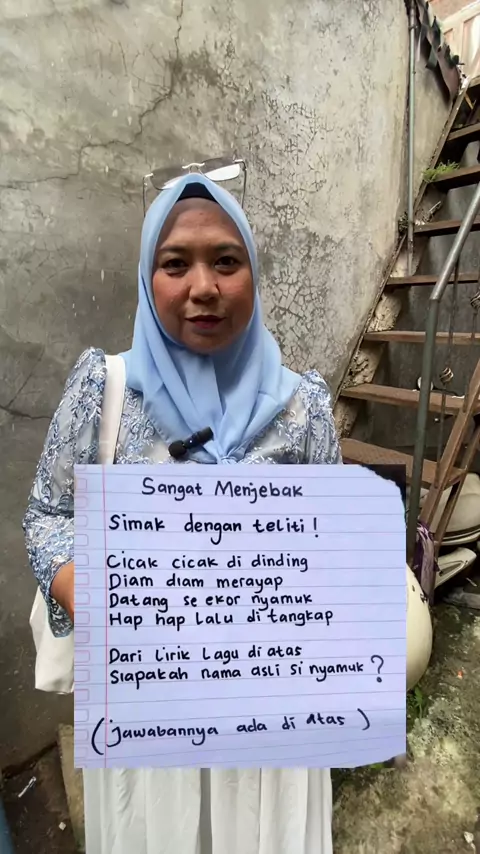 Sangat Menjebak
Simak dengan teliti!
Cicak cicak di dinding
Diam diam merayap
Datang se ekor nyamuk
Hap hap lalu di tangkap
Dari lirik lagu di atas
Siapakah nama asli si nyamuk?
(jawabannya ada di atas)